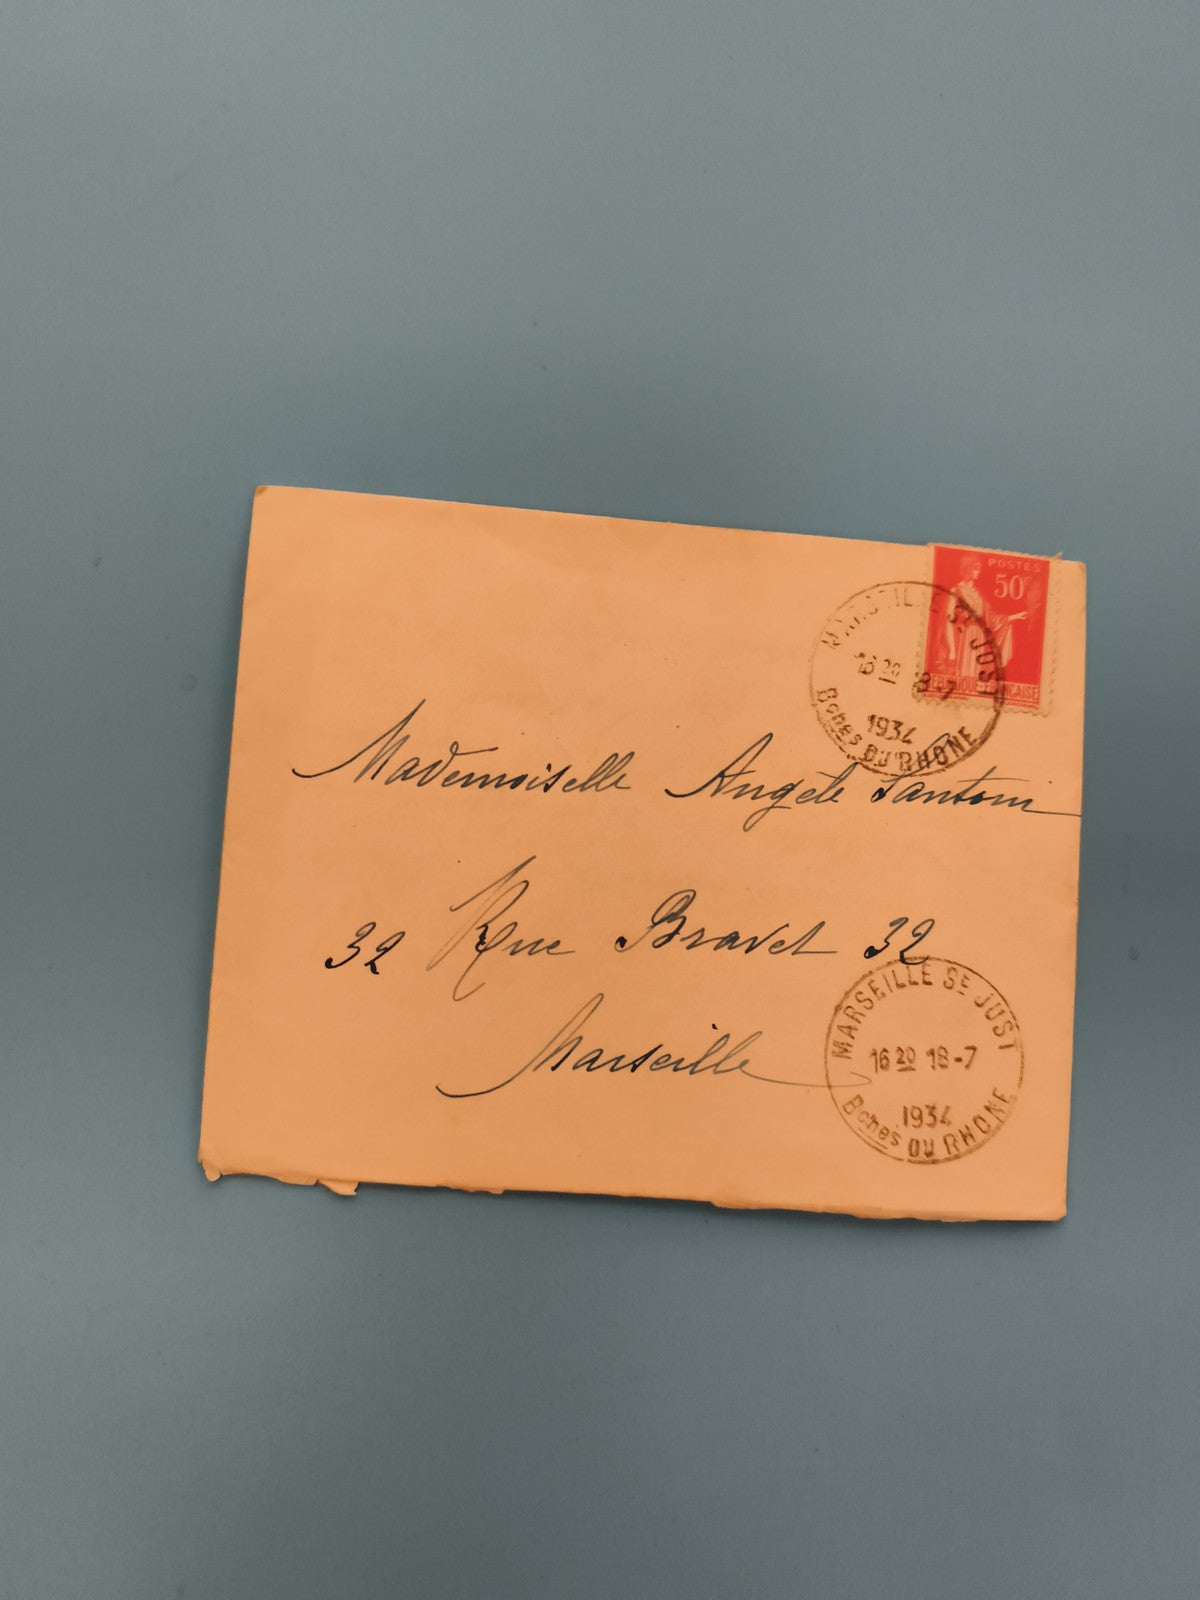 POSTES
50c
REPUBLIQUE-FRANÇAISE
MARSEILLE St JUST
16 20 18-7
1934
Bches DU RHONE
Mademoiselle Angèle Santoni
32 Rue Bravet 32
Marseille
MARSEILLE St JUST
16 20 18-7
1934
Bches DU RHONE